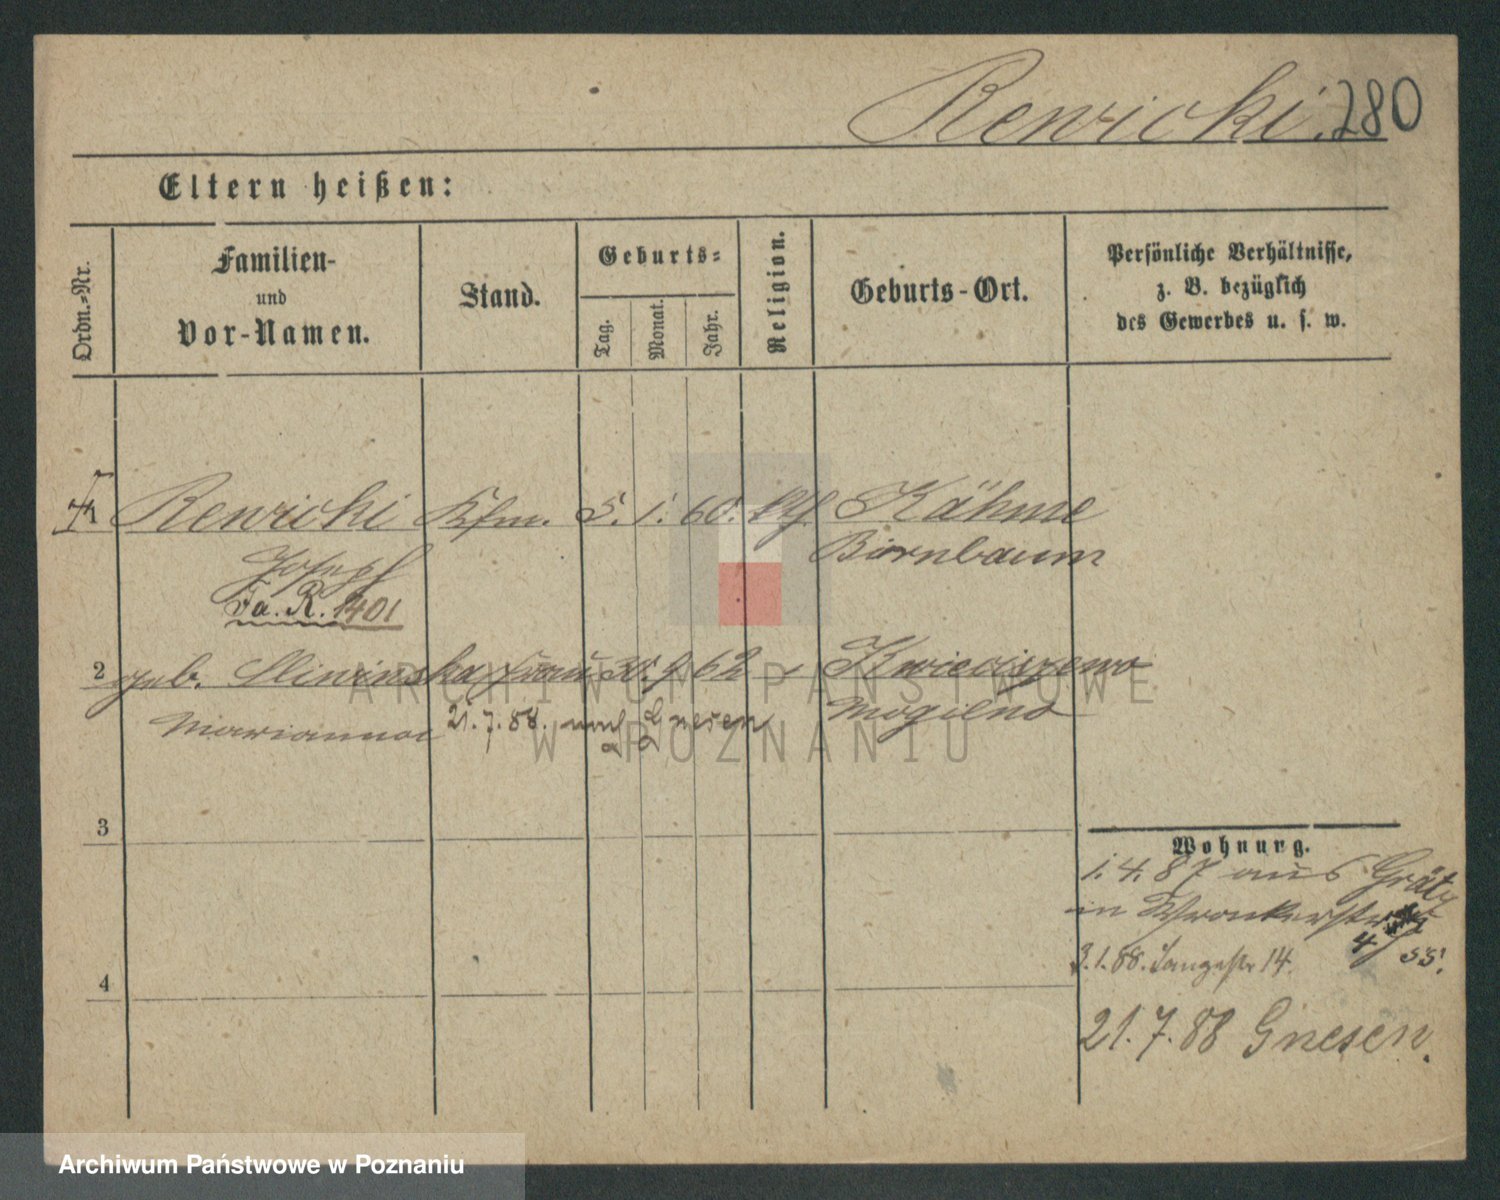 Renricki. 280
Eltern heißen:
Ordn.-Nr.
Familien-
und
Vor-Namen.
Stand.
Geburts-
Tag.
Monat.
Jahr.
Religion.
Geburts-Ort.
Persönliche Verhältnisse,
z. B. bezüglich
des Gewerbes u. s. w.
1 Renricki Kfm. 5. 1. 60. Kth. Kähme
Joseph Birnbaum
Fa. R. 1401
2 geb. Sliwinska Frau 30. 9. 62 Kwieciszewo
Marianna 21.7.88. nach Gnesen Mogilno
3
4
Wohnung.
1. 4. 87 aus Grätz
in Wronkerstr
4/5 55.
3.1.88. Langestr 14.
21. 7. 88 Gnesen.
ARCHIWUM PAŃSTWOWE
W POZNANIU
Archiwum Państwowe w Poznaniu